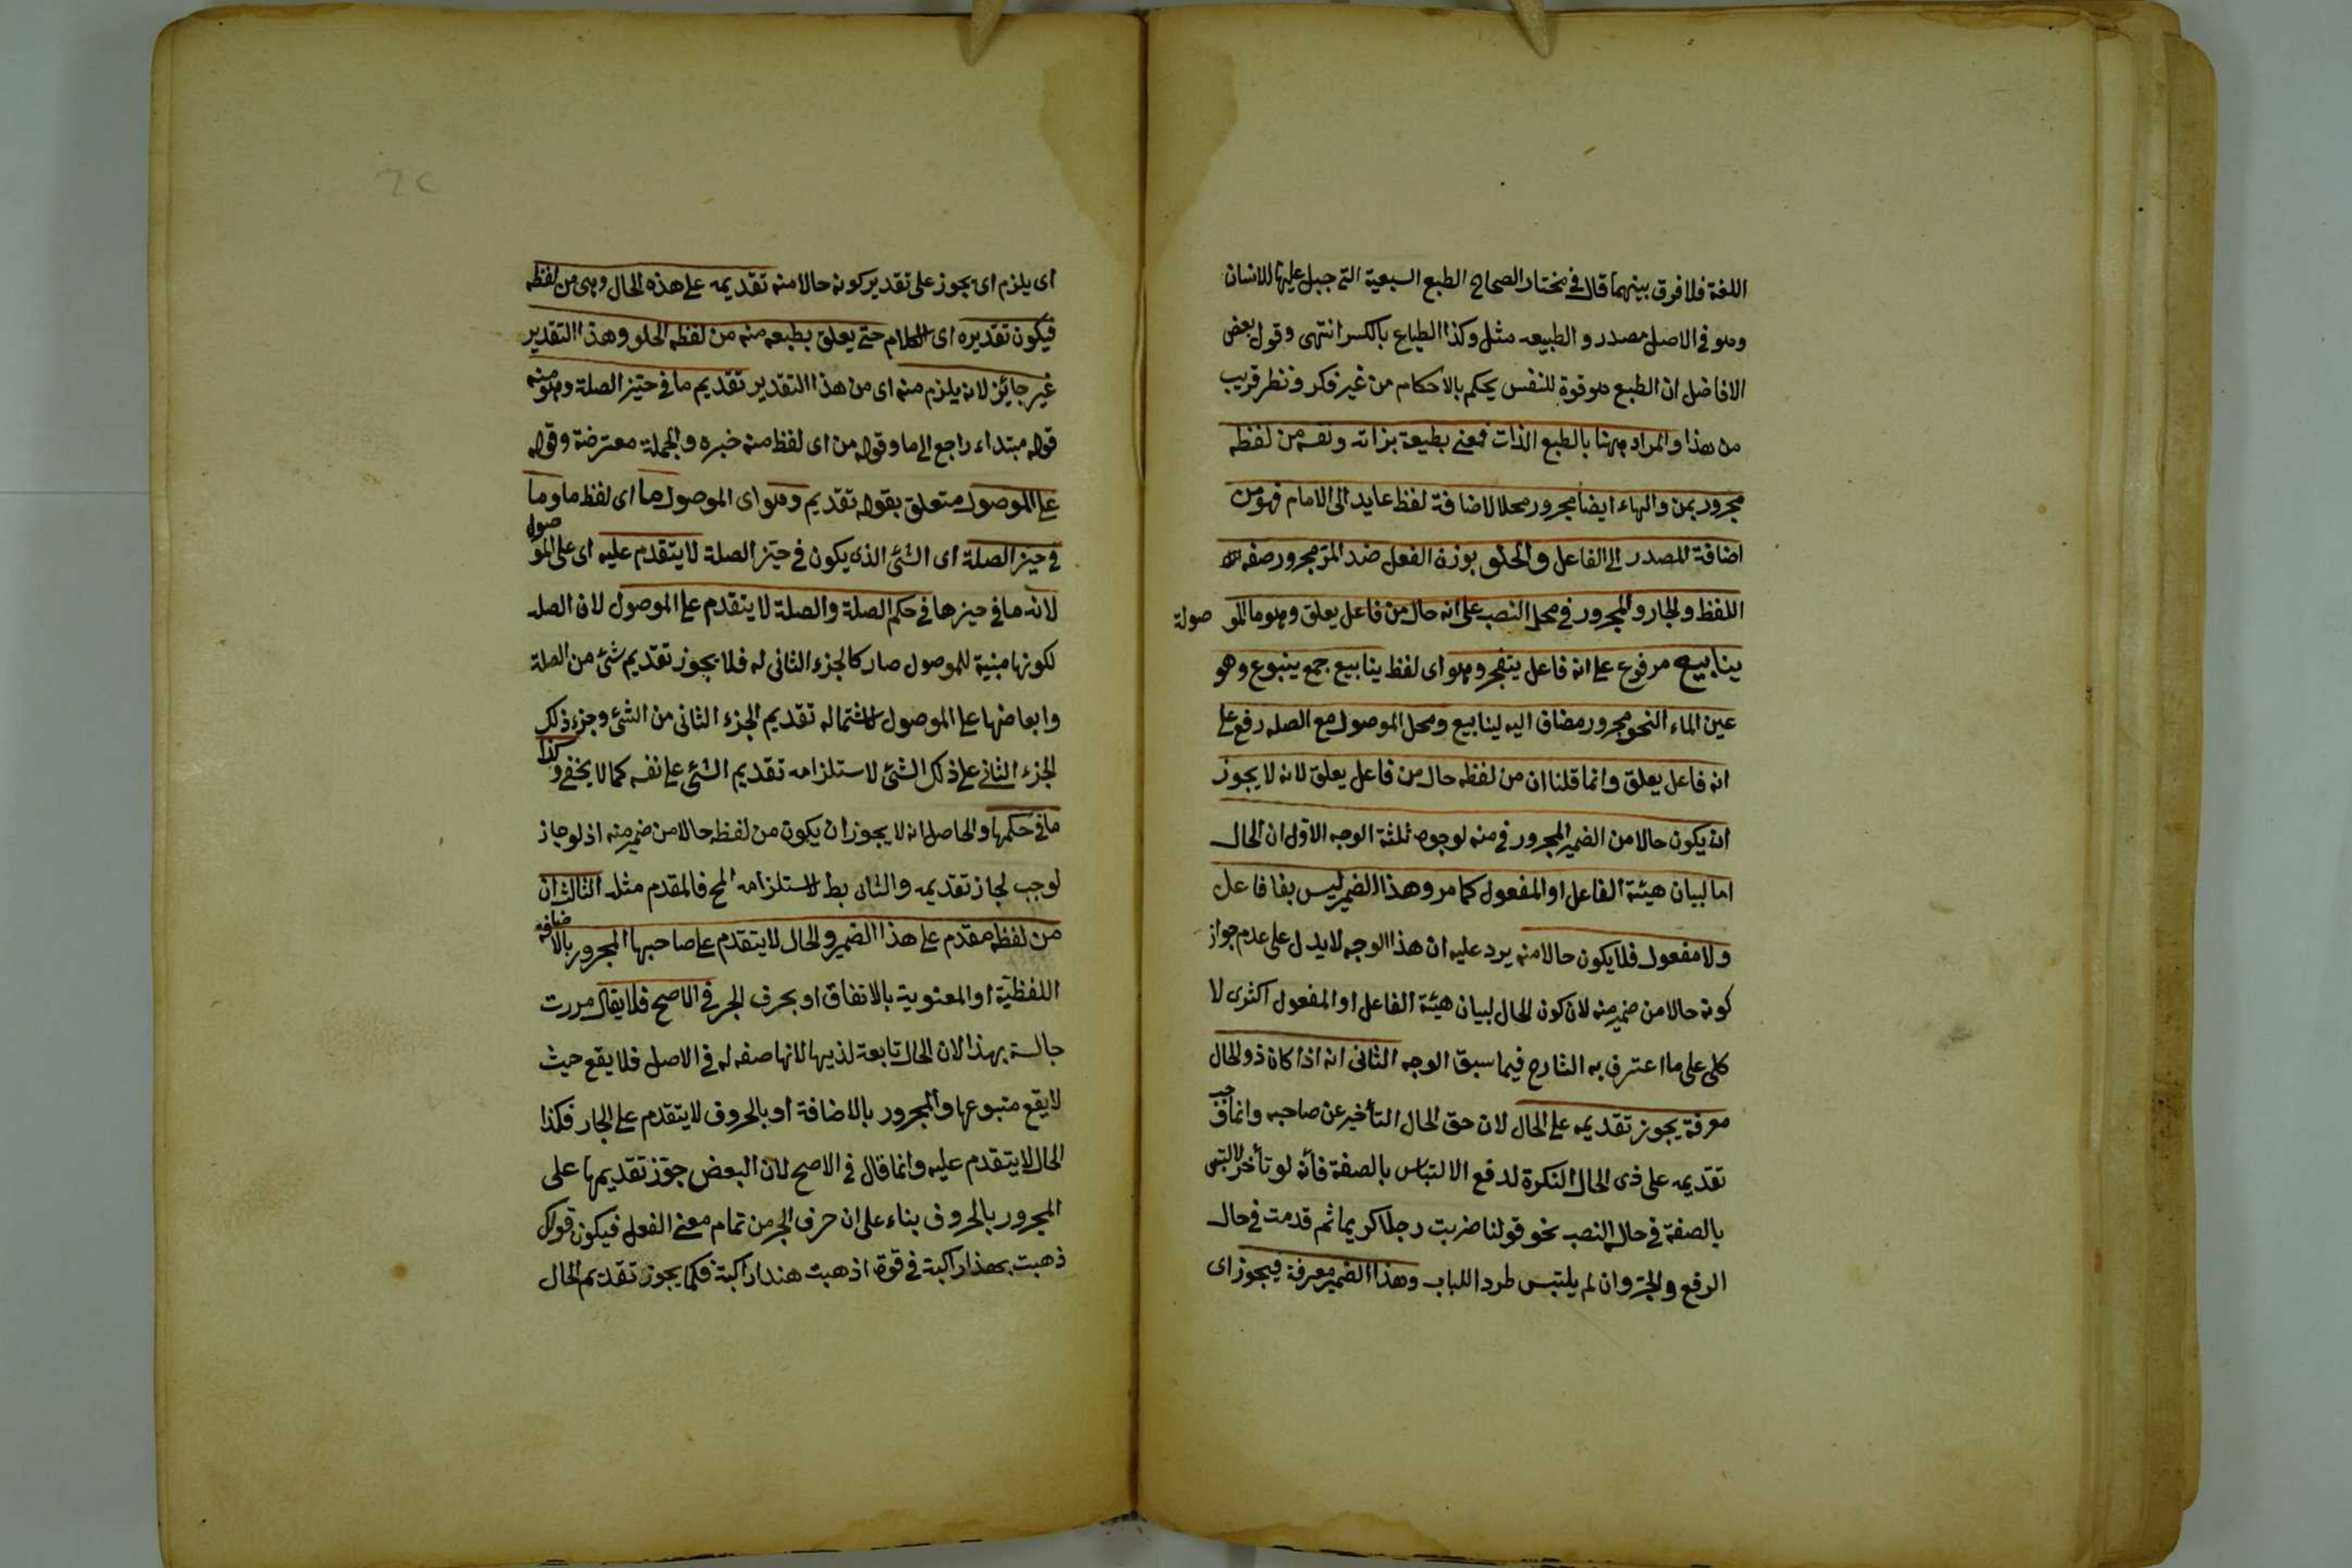 اللغة فلا فرق بينهما قال في مختار الصحاح الطبع السبعية التي جبل عليها الانسان
وهو في الاصل مصدر و الطبيعه مثل وكذا الطباع بالكسر انتهى وقول بعض
الافاضل ان الطبع هو قوة للنفس يحكم بالاحكام من غير فكر ونظر قريب
من هذا والمراد ههنا بالطبع الذات فمعنى بطبيعة بذاته ونفسه من لفظه
مجرور بمن والهاء ايضا مجرور محلا لاضافة لفظ عايد الى الامام فهو من
اضافة المصدر الى الفاعل والحلو بوزن الفعل ضد المر مجرور صفه
اللفظ والجار والمجرور في محل النصب على انه حال من فاعل يعلق وهو ما الموصولة
ينابيع مرفوع على انه فاعل يتفجر وهو اى لفظ ينابيع جمع ينبوع وهو
عين الماء النحو مجرور مضاف اليه لينابيع ومحل الموصول مع الصله رفع على
انه فاعل يعلق وانما قلنا ان من لفظه حال من فاعل يعلق لانه لا يجوز
ان يكون حالا من الضمير المجرور في منه لوجوه ثلثة الوجه الاول ان الحال
اما لبيان هيئة الفاعل او المفعول كما مر وهذا الضمير ليس بفا فاعل
ولا مفعول فلا يكون حالا منه يرد عليه ان هذا الوجه لا يدل على عدم جواز
كونه حالا من ضمير منه لان كون الحال لبيان هيئة الفاعل او المفعول اكثرى لا
كلى على ما اعترف به الشارح فيما سبق الوجه الثانى انه اذا كان ذو الحال
معرفة يجوز تقديمه على الحال لان حق الحال التأخير عن صاحبه وانما وجب
تقديمه على ذى الحال النكرة لدفع الالتباس بالصفة فأنه لو تأخر لالتبس
بالصفة في حال النصب نحو قولنا ضربت رجلا كريما ثم قدمت في حال
الرفع والجر وان لم يلتبس طردا للباب وهذا الضمير معرفة فيجوز اى
اى يلزم اى يجوز على تقدير كونه حالا منه تقديمه على هذه الحال وهى من لفظه
فيكون تقديره اى الكلام حتى يعلق بطبعه منه من لفظه الحلو وهذا التقدير
غير جائز لانه يلزم منه اى من هذا التقدير تقديم ما في حيز الصلة وهو منه
قوله مبتداء راجع الى ما وقوله من اى لفظ منه خبره والجملة معترضة وقوله
على الموصول متعلق بقوله تقديم وهو اى الموصول ما اى لفظ ما وما
في حيز الصلة اى الشئ الذى يكون في حيز الصلة لا يتقدم عليه اى على الموصول
لانه ما في حيزها في حكم الصلة والصلة لا يتقدم على الموصول لان الصله
لكونها مبنية للموصول صار كالجزء الثانى له فلا يجوز تقديم شئ من الصلة
وابعاضها على الموصول لاشتماله تقديم الجزء الثانى من الشئ وجزء ذلك
الجزء الثانى على ذلك الشئ لاستلزامه تقديم الشئ على نفسه كما لا يخفى وكذا
ما في حكمها والحاصل انه لا يجوز ان يكون من لفظه حالا من ضمير منه اذ لو جاز
لوجب لجاز تقديمه والثانى بط لاستلزامه المح فالمقدم مثله الثالث ان
من لفظه مقدم على هذا الضمير والحال لا يتقدم على صاحبها المجرور بالاضافه
اللفظية او المعنوية بالاتفاق او بحرف الجر في الاصح فلا يقال مررت
جالسة بهند لان الحال تابعة لذيها لانها صفه له في الاصل فلا يقع حيث
لا يقع متبوعها والمجرور بالاضافة او بالحروف لا يتقدم على الجار فكذا
الحال لا يتقدم عليه وانما قال في الاصح لان البعض جوز تقديمها على
المجرور بالحروف بناء على ان حرف الجر من تمام معنى الفعل فيكون قولك
ذهبت بهند راكبة في قوة اذهبت هندا راكبة فكما يجوز تقديم الحال